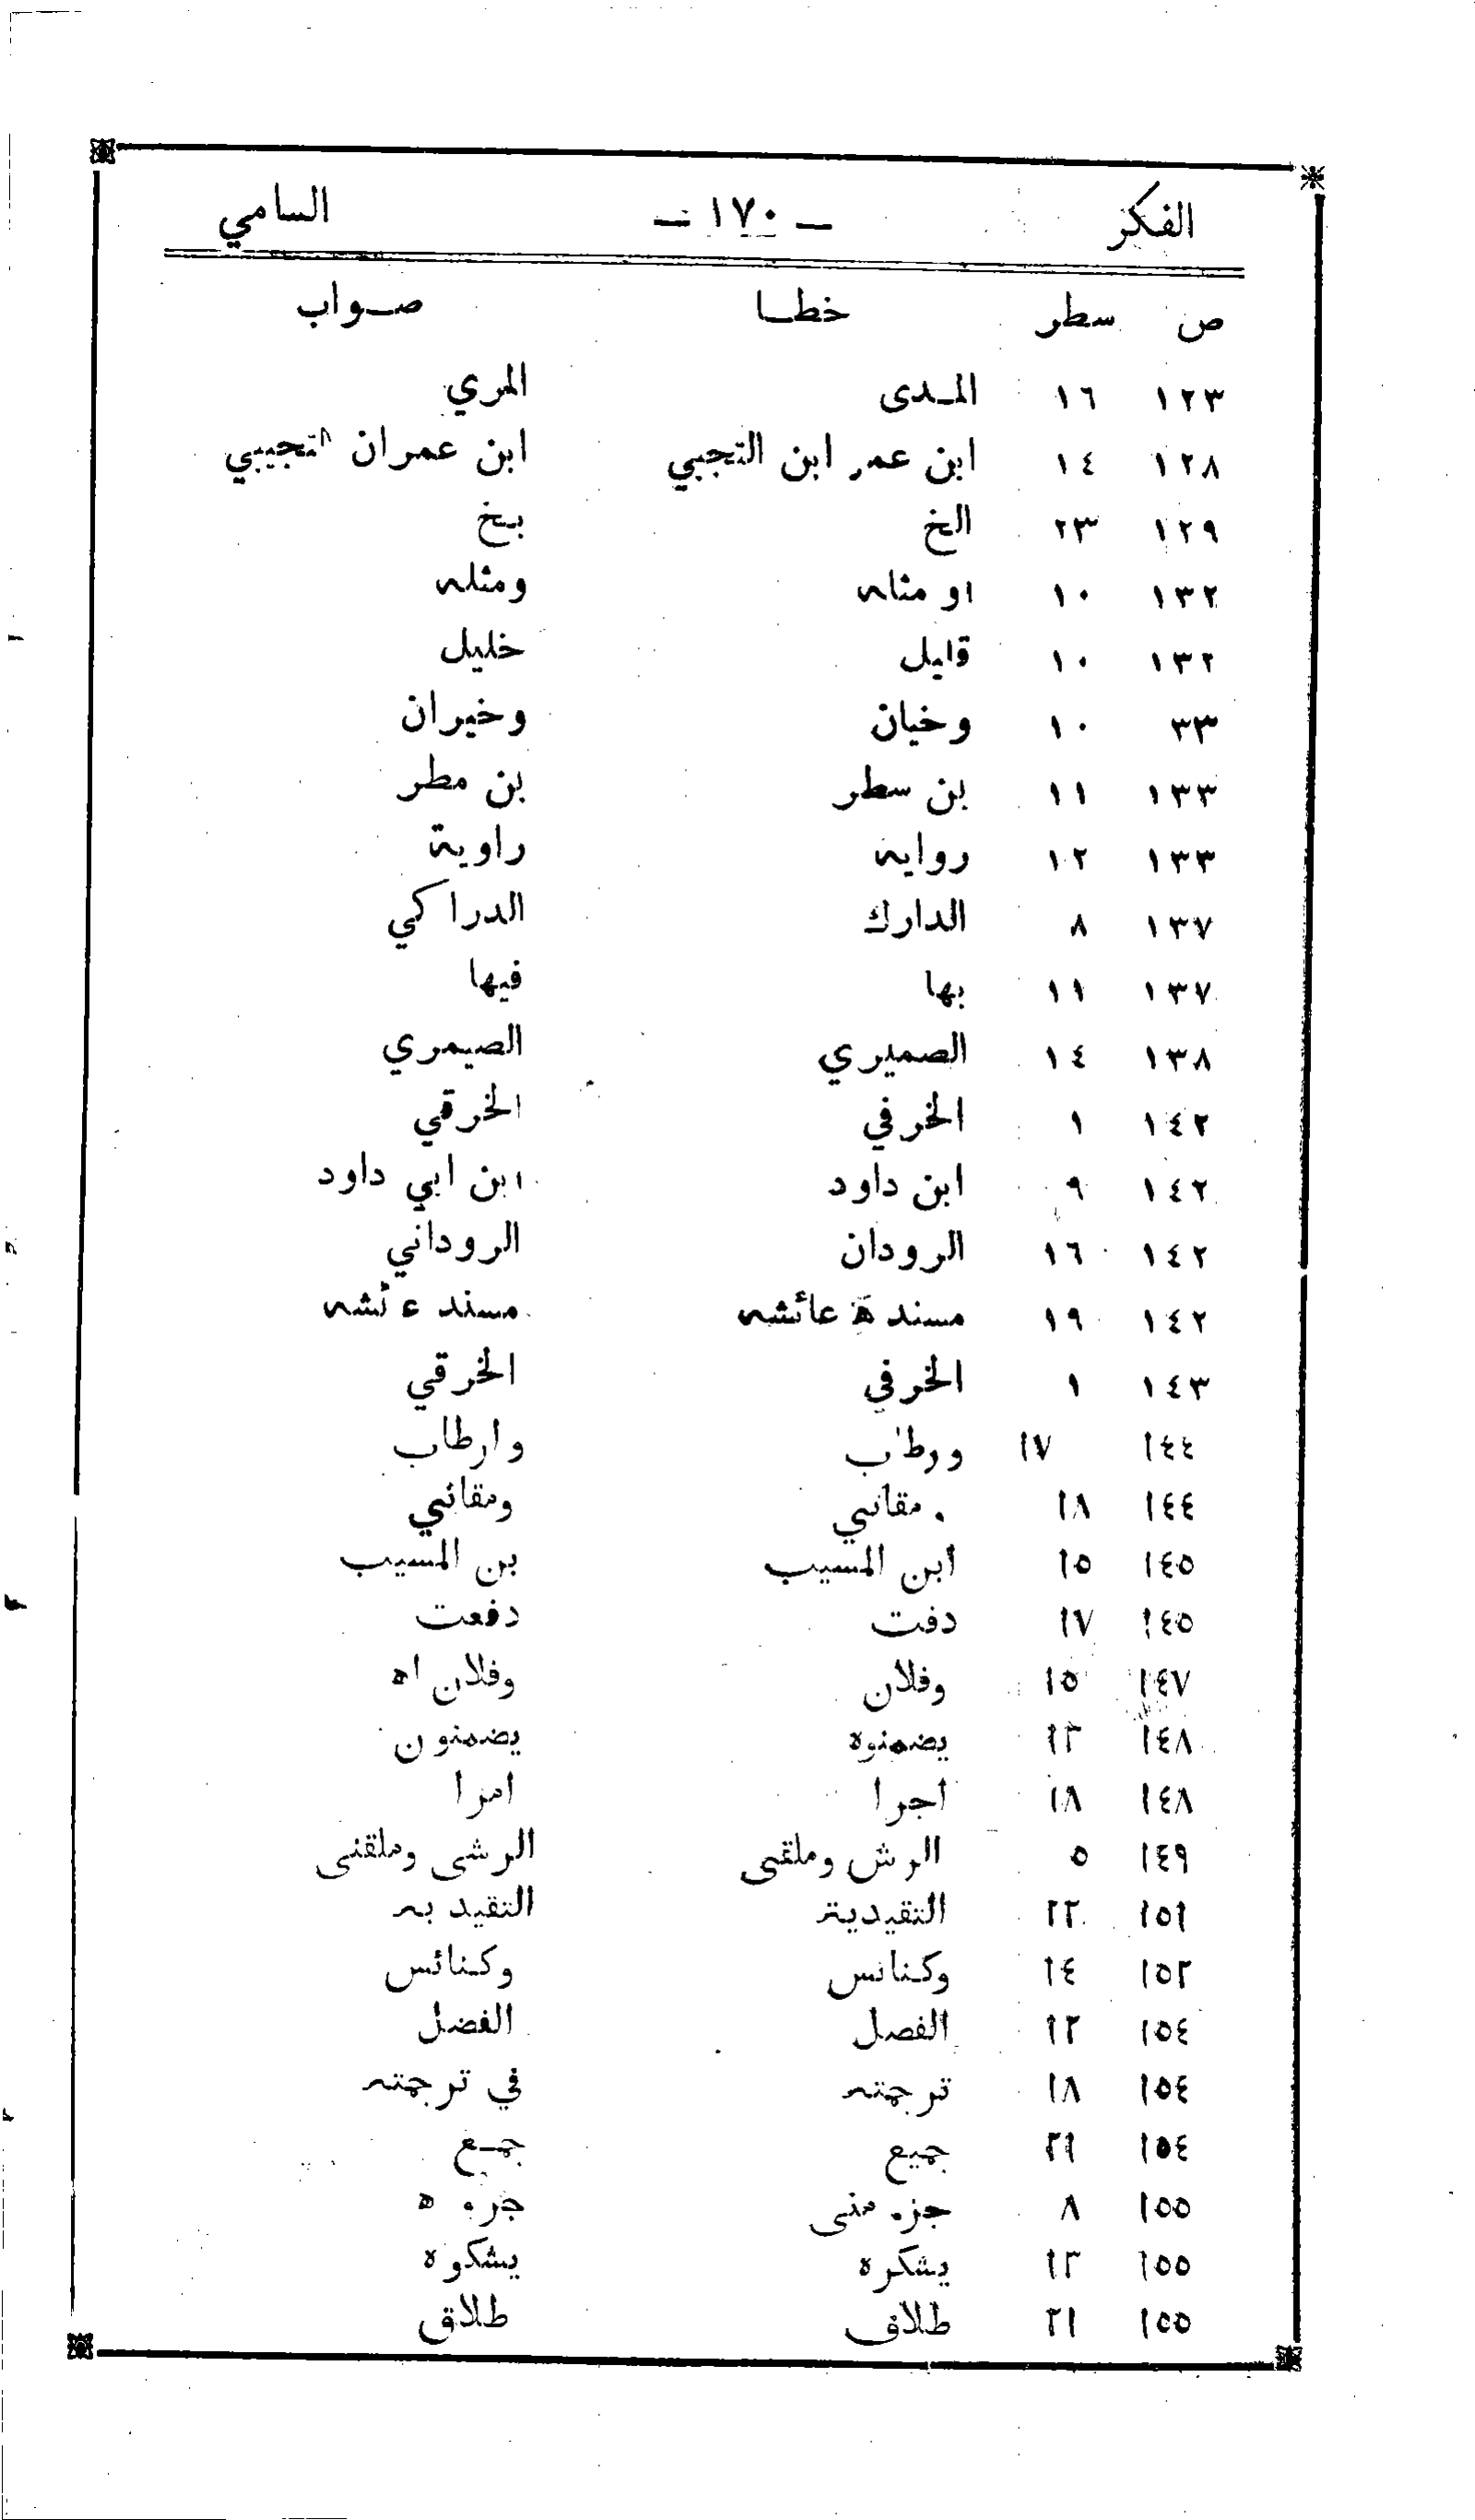 الفكر — ١٧٠ — السامي
ص سطر خطـا صـواب
١٢٣ ١٦ المـدى المري
١٢٨ ١٤ ابن عمر ابن التجبي ابن عمران التجيبي
١٢٩ ٢٣ الخ بـخ
١٣٢ ١٠ او مثله ومثله
١٣٢ ١٠ قليل خليل
٣٣ ١٠ وخيان وخيران
١٣٣ ١١ بن سطر بن مطر
١٣٣ ١٢ رواية راوية
١٣٧ ٨ الدارك الدراكي
١٣٧ ١١ بها فيها
١٣٨ ١٤ الصميري الصيمري
١٤٢ ١ الخرفي الخرقي
١٤٢ ٩ ابن داود ابن ابي داود
١٤٢ ١٦ الرودان الروداني
١٤٢ ١٩ مسندة عائشه مسند عائشه
١٤٣ ١ الخرفي الخرقي
١٤٤ ١٧ ورطاب وارطاب
١٤٤ ١٨ ومقاتي
١٤٥ ١٥ ابن المسيب بن المسيب
١٤٥ ١٧ دفت دفعت
١٤٧ ١٥ وفلان وفلان اه
١٤٨ ١٣ يضمنوه يضمنون
١٤٨ ١٨ اجرا امرا
١٤٩ ٥ الرش وملقى الرشى وملقنى
١٥١ ٢٢ التقيدية التقيد به
١٥٢ ١٤ وكنانس وكنائس
١٥٤ ١٢ الفصل الفضل
١٥٤ ١٨ ترجمته في ترجمته
١٥٤ ٢١ جميع جمـع
١٥٥ ٨ جزء منى جزء ه
١٥٥ ١٣ يشكره يشكوه
١٥٥ ٢١ طلاف طلاق